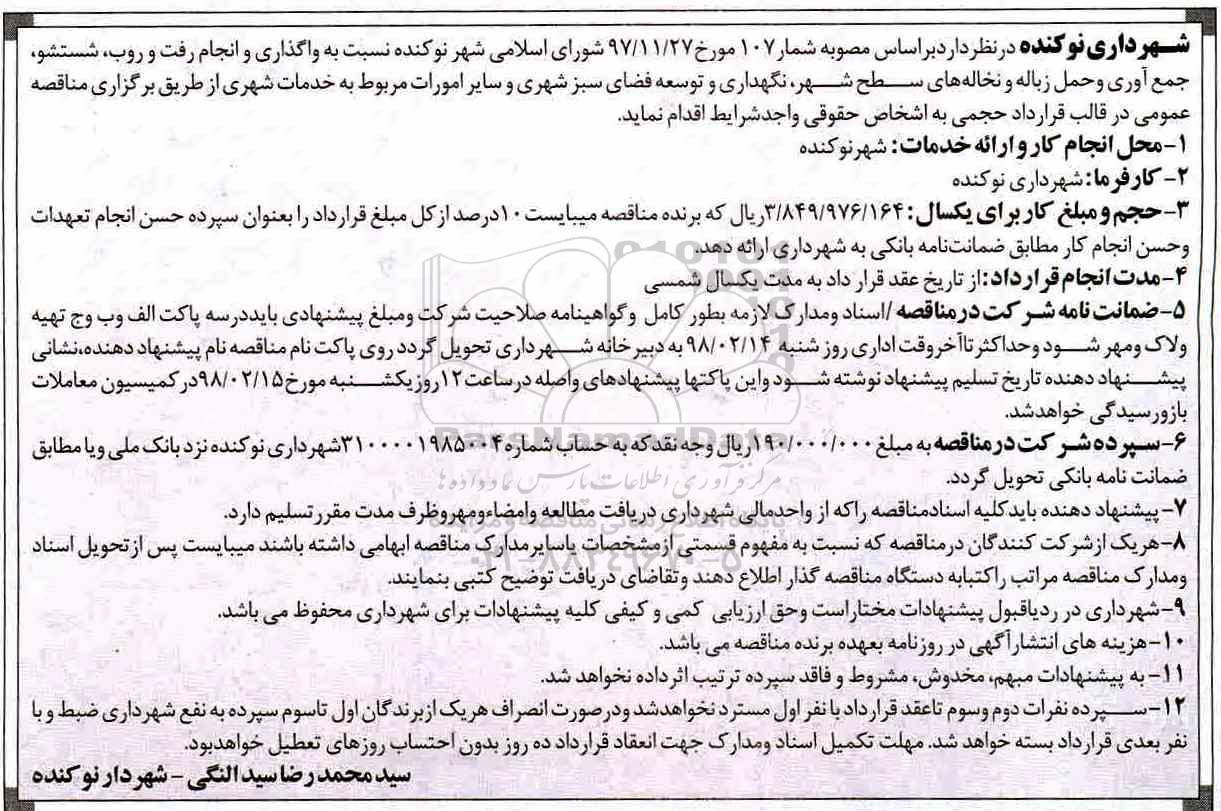 شهرداری نوکنده در نظر دارد براساس مصوبه شمار ۱۰۷ مورخ ۹۷/۱۱/۲۷ شورای اسلامی شهر نوکنده نسبت به واگذاری و انجام رفت و روب، شستشو،
جمع آوری وحمل زباله و نخاله‌های سطح شهر، نگهداری و توسعه فضای سبز شهری و سایر امورات مربوط به خدمات شهری از طریق برگزاری مناقصه
عمومی در قالب قرارداد حجمی به اشخاص حقوقی واجدشرایط اقدام نماید.
۱-محل انجام کار و ارائه خدمات: شهرنوکنده
۲- کارفرما: شهرداری نوکنده
۳-حجم و مبلغ کار برای یکسال: ۳/۸۴۹/۹۷۶/۱۶۴ریال که برنده مناقصه میبایست ۱۰درصد از کل مبلغ قرارداد را بعنوان سپرده حسن انجام تعهدات
وحسن انجام کار مطابق ضمانت‌نامه بانکی به شهرداری ارائه دهد.
۴-مدت انجام قرارداد: از تاریخ عقد قرار داد به مدت یکسال شمسی
۵-ضمانت نامه شرکت در مناقصه /اسناد ومدارک لازمه بطور کامل و گواهینامه صلاحیت شرکت ومبلغ پیشنهادی باید درسه پاکت الف وب وج تهیه
ولاک ومهر شود وحداکثر تاآخروقت اداری روز شنبه ۹۸/۰۲/۱۴ به دبیرخانه شهرداری تحویل گردد روی پاکت نام مناقصه نام پیشنهاد دهنده،نشانی
پیشنهاد دهنده تاریخ تسلیم پیشنهاد نوشته شود واین پاکتها پیشنهادهای واصله درساعت ۱۲روزیکشنبه مورخ ۹۸/۰۲/۱۵در کمیسیون معاملات
بازورسیدگی خواهدشد.
۶-سپرده شرکت در مناقصه به مبلغ ۱۹۰/۰۰۰/۰۰۰ریال وجه نقدکه به حساب شماره ۳۱۰۰۰۰۱۹۸۵۰۰۴شهرداری نوکنده نزد بانک ملی ویا مطابق
ضمانت نامه بانکی تحویل گردد.
۷- پیشنهاد دهنده بایدکلیه اسنادمناقصه راکه از واحدمالی شهرداری دریافت مطالعه وامضاءومهروظرف مدت مقررتسلیم دارد.
۸-هریک ازشرکت کنندگان درمناقصه که نسبت به مفهوم قسمتی ازمشخصات یاسایرمدارک مناقصه ابهامی داشته باشند میبایست پس ازتحویل اسناد
ومدارک مناقصه مراتب راکتبابه دستگاه مناقصه گذار اطلاع دهند وتقاضای دریافت توضیح کتبی بنمایند.
۹-شهرداری در ردیاقبول پیشنهادات مختاراست وحق ارزیابی کمی و کیفی کلیه پیشنهادات برای شهرداری محفوظ می باشد.
۱۰-هزینه های انتشارآگهی در روزنامه بعهده برنده مناقصه می باشد.
۱۱- به پیشنهادات مبهم، مخدوش، مشروط و فاقد سپرده ترتیب اثرداده نخواهد شد.
۱۲-سپرده نفرات دوم وسوم تاعقد قرارداد با نفر اول مسترد نخواهدشد ودرصورت انصراف هریک ازبرندگان اول تاسوم سپرده به نفع شهرداری ضبط و با
نفر بعدی قرارداد بسته خواهد شد. مهلت تکمیل اسناد ومدارک جهت انعقاد قرارداد ده روز بدون احتساب روزهای تعطیل خواهدبود.
سید محمدرضا سید النگی - شهردار نوکنده
ParsNamadData
مرکز فرآوری اطلاعات پارس نماد داده ها
۰۲۱-۸۸۳۴۹۶۷۰-۵